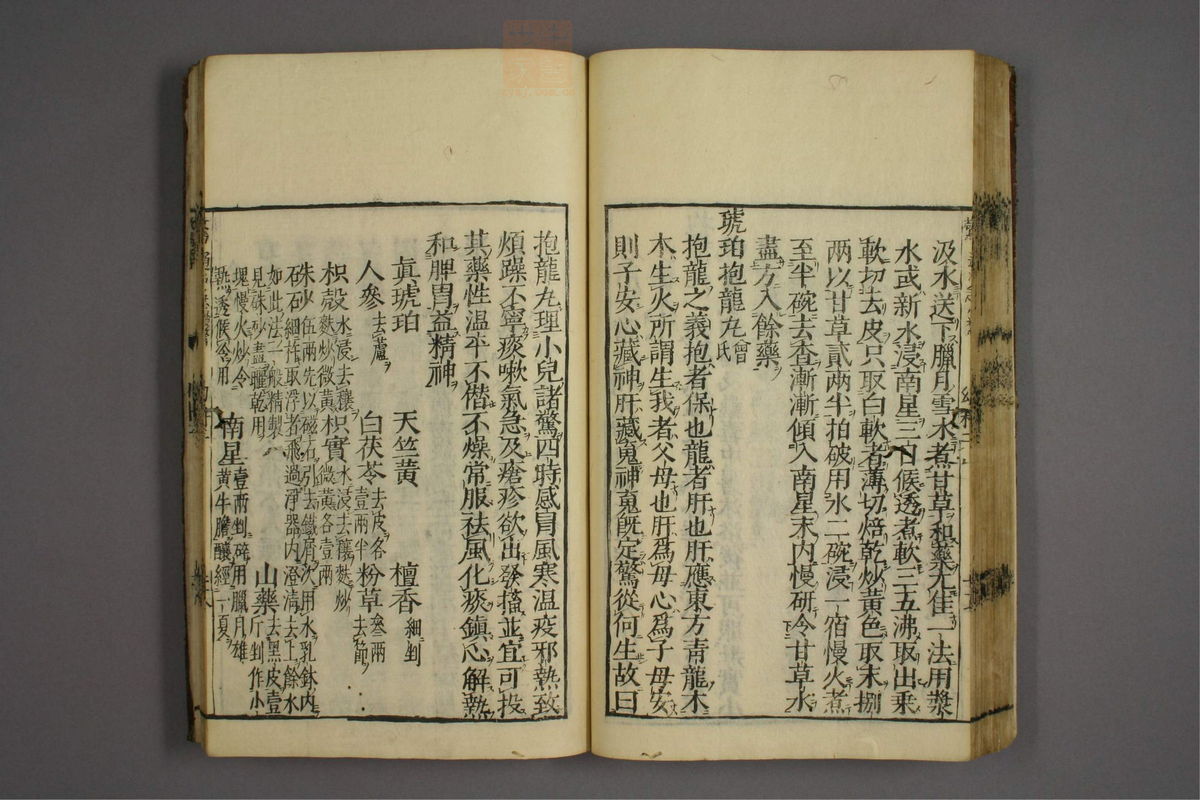 汲水送下臘月雪水煮甘草和藥尤佳一法用漿
水或新水浸南星三日候透煮軟三五沸取出乗
軟切去皮只取白軟者薄切焙乾炒黄色取末捌
兩以甘草貳两半拍破用水二碗浸一宿慢火煮
至半碗去查漸漸傾入南星末内慢研令甘草水
盡方入餘藥
琥珀抱龍丸曾氏
抱龍之義抱者保也龍者肝也肝應東方青龍木
木生火所謂生我者父母也肝爲母心爲子母安
則子安心藏神肝藏䰟神䰟旣定驚從何生故曰
抱龍丸理小兒諸驚四時感冒風寒温疫邪熱致
煩躁不寧痰嗽氣急及瘡疹欲出發搐並宜可投
其藥性温平不僭不燥常服祛風化痰鎮心解熱
和脾胃益精神
眞琥珀 天竺黄 檀香細剉
人參去蘆 白茯苓去皮各壹兩半 粉草叄兩去節
枳殻水浸去穰麩炒微黄 枳實水浸去穰麩炒微黄各壹兩
硃砂伍兩先以磁石引去鐵屑次用水乳鉢内
細杵取浮者飛過淨器内澄清去上餘水
如此法一般精製
見硃砂盡曬乾用 山藥去黑皮壹斤剉作小
塊慢火炒令
熟透候冷用 南星壹兩剉碎用臘月雄
黄牛膽釀經一夏